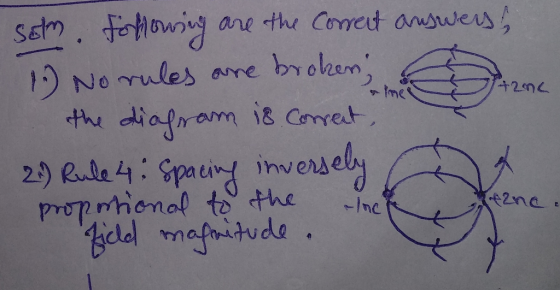 Soln. Following are the Correct answers;
1.) No rules are broken;
the diagram is Correct.
-1nc
+2nc
2.) Rule 4: Spacing inversely
proportional to the
field magnitude.
-1nc
+2nc.